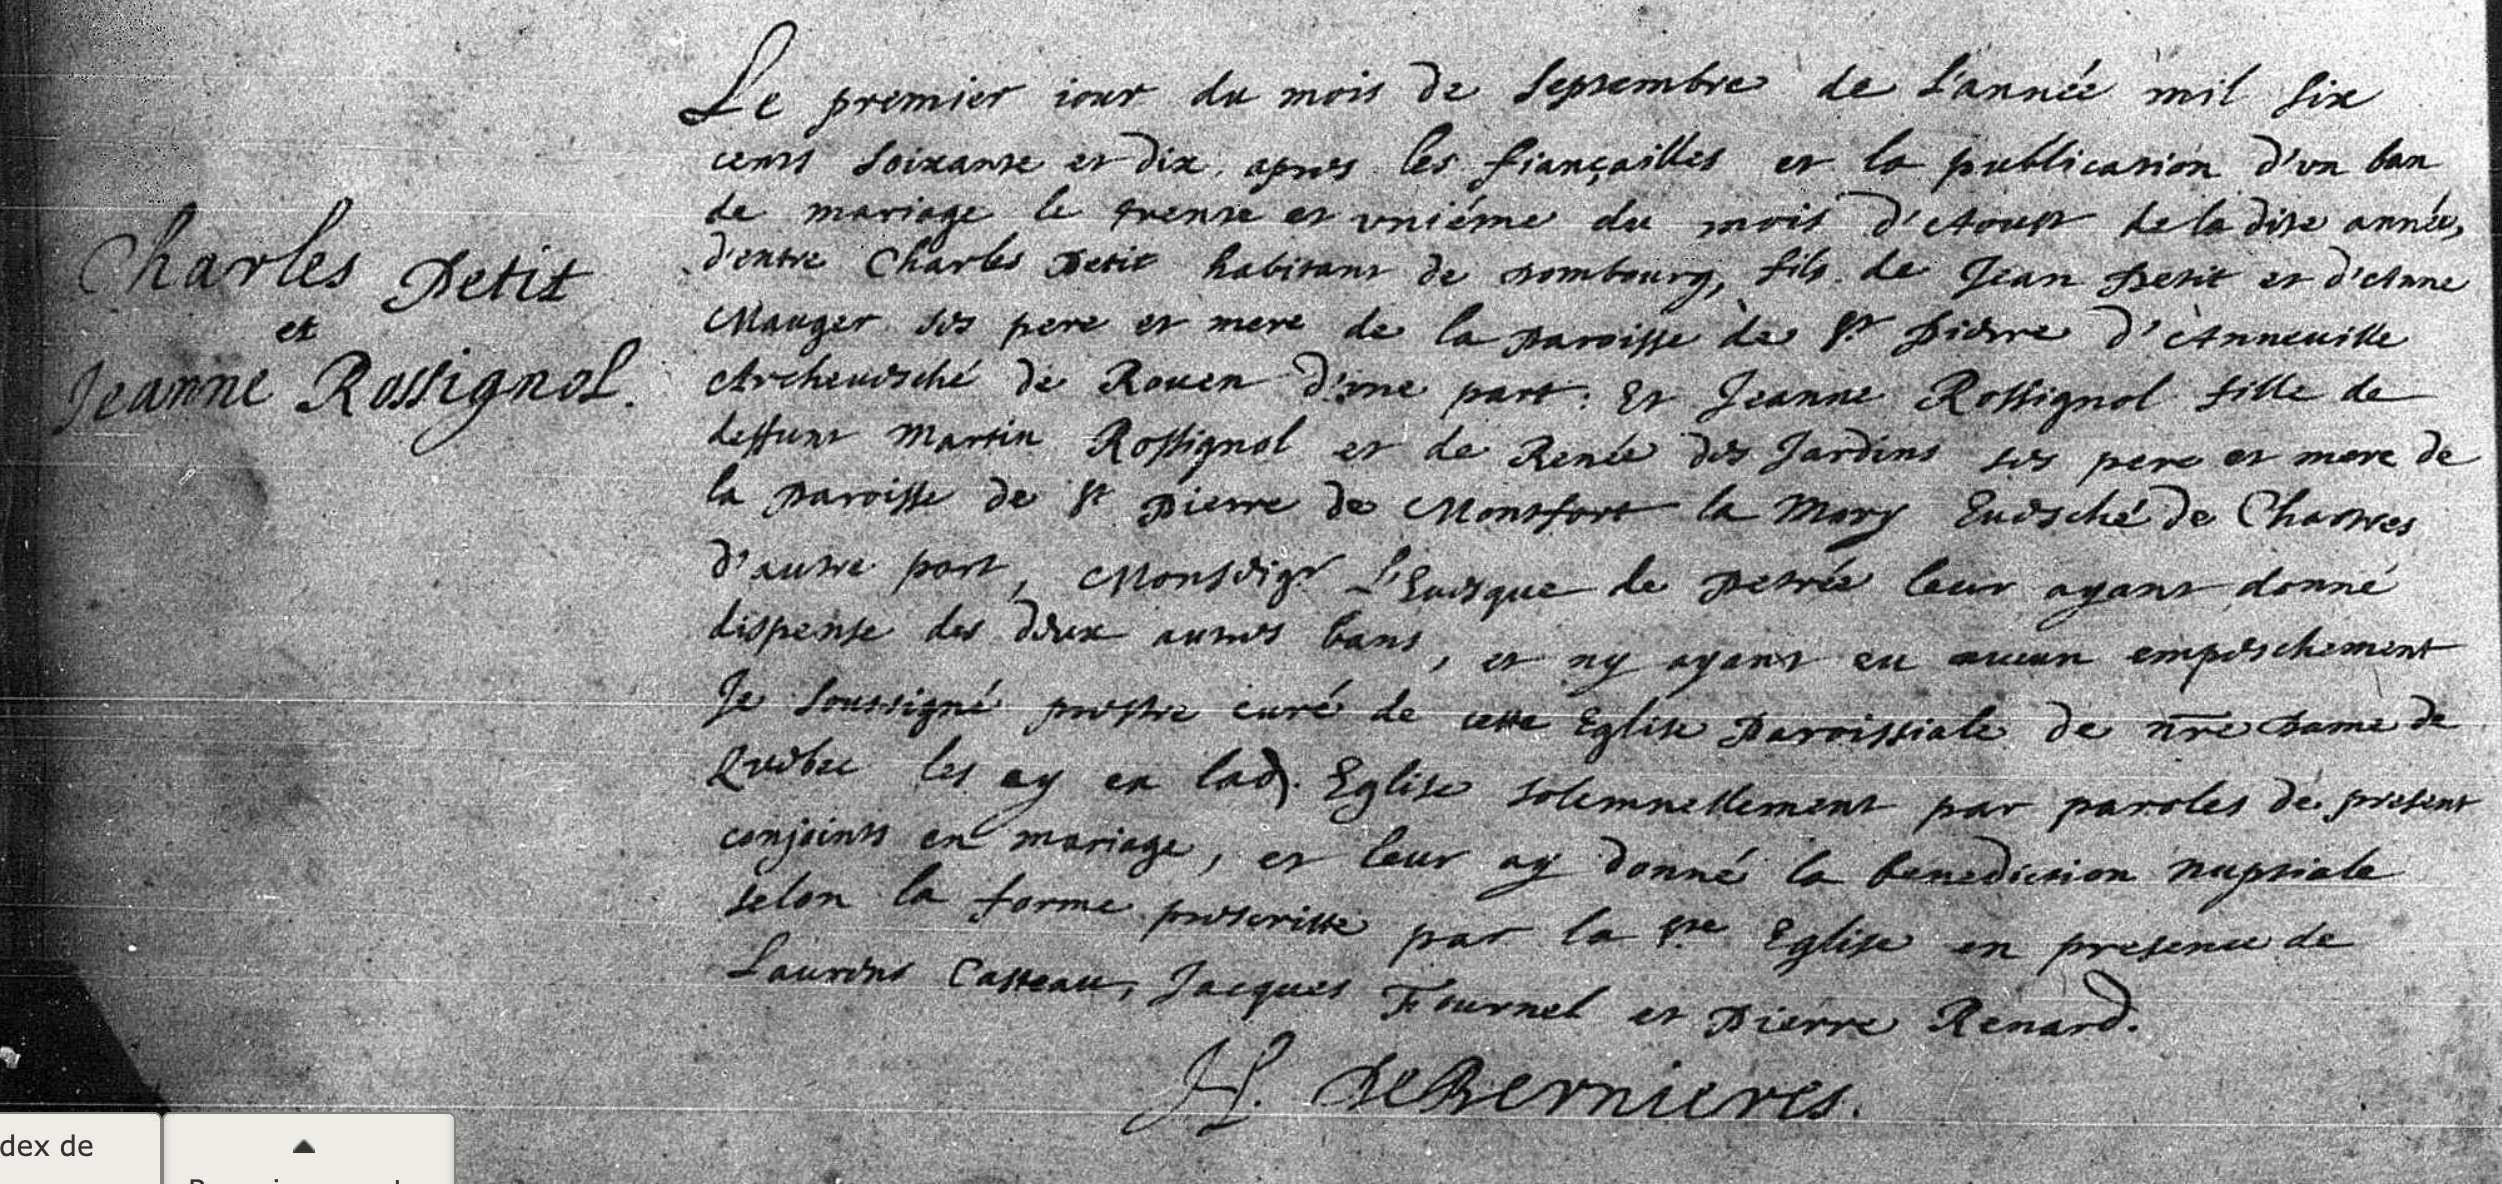 Charles Petit
et
Jeanne Rossignol.
Le premier iour du mois de septembre de l'année mil six
cents soixante et dix, apres les fiançailles et la publication d'vn ban
de mariage le trente et vniéme du mois d'Aoust de la dite année,
d'entre Charles Petit habitant de Dombourg, fils de Jean Petit et d'Anne
Mauger ses pere et mere de la Paroisse de St Pierre d'Anneuille
Archeuesché de Rouen d'une part: Et Jeanne Rossignol fille de
deffunt Martin Rossignol et de Renée des Jardins ses pere et mere de
la Paroisse de St Pierre de Montfort la Mory Euesché de Chartres
d'autre part, Monseigr L'Euesque de Petrée leur ayant donné
dispense des deux autres bans, et ny ayant eu aucun empeschement
Je soussigné prestre curé de cette Eglise Paroissiale de nre Dame de
Quebec les ay en lad. Eglise solemnellement par paroles de present
conjoints en mariage, et leur ay donné la benediction nuptiale
selon la forme prescritte par la Ste Eglise en presence de
Laurens Casteau, Jacques Fournel et Pierre Renard.
H. DeBernieres.
dex de